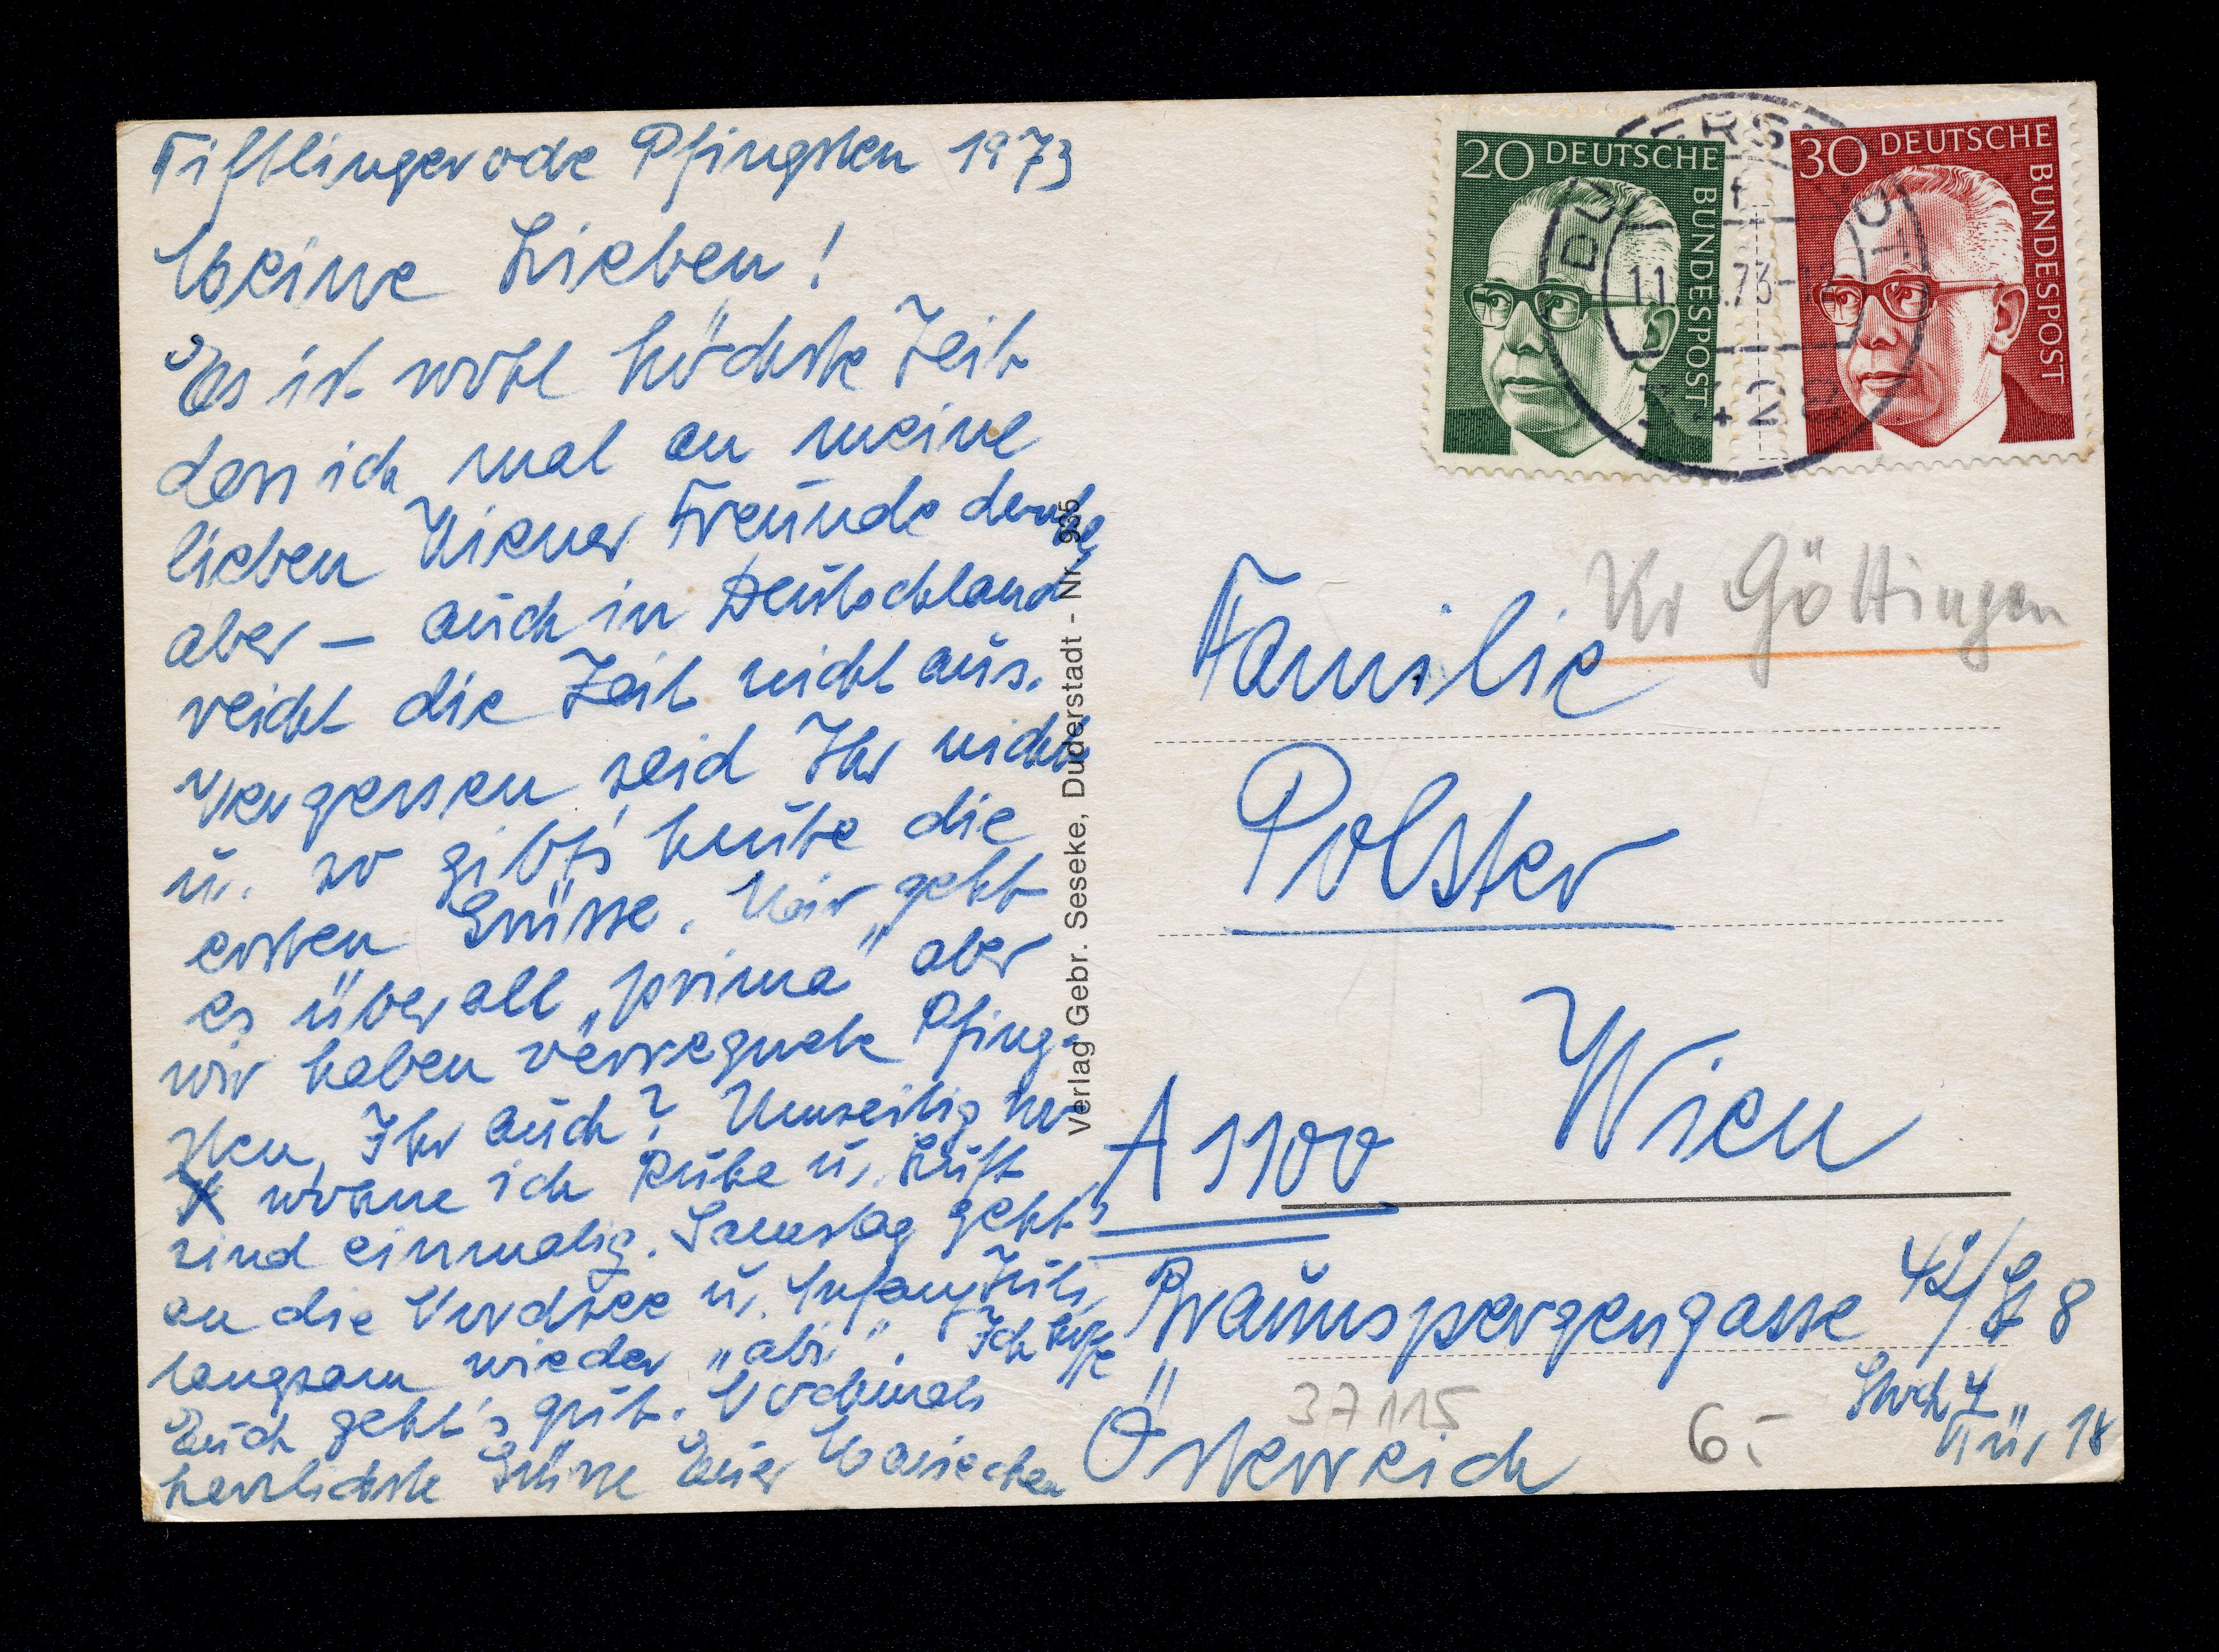 Tiftlingerode Pfingsten 1973
Meine Lieben!
Es ist wohl höchste Zeit
dass ich mal an meine
lieben Wiener Freunde denke,
aber – auch in Deutschland
reicht die Zeit nicht aus.
Vergessen seid Ihr nicht
u. so gibt's heute die
ersten Grüsse. Mir geht
es überall „prima" aber
wir haben verregnete Pfing-
sten, Ihr auch? Umseitig
wohne ich Ruhe u. Luft
sind einmalig. Samstag geht's
an die Nordsee u. Anfang Juli
langsam wieder „abi". Ich hoffe
Euch geht's gut. Nochmals
herzlichste Grüsse Euer Mariechen
Verlag Gebr. Seseke, Duderstadt - Nr. 935
20 DEUTSCHE BUNDESPOST
30 DEUTSCHE BUNDESPOST
11. .73-12
Kr Göttingen
Familie
Polster
Wien
A 1100
Braunspergengasse 42/ 8
Stock 4
Tür 18
37115
6.-
Österreich